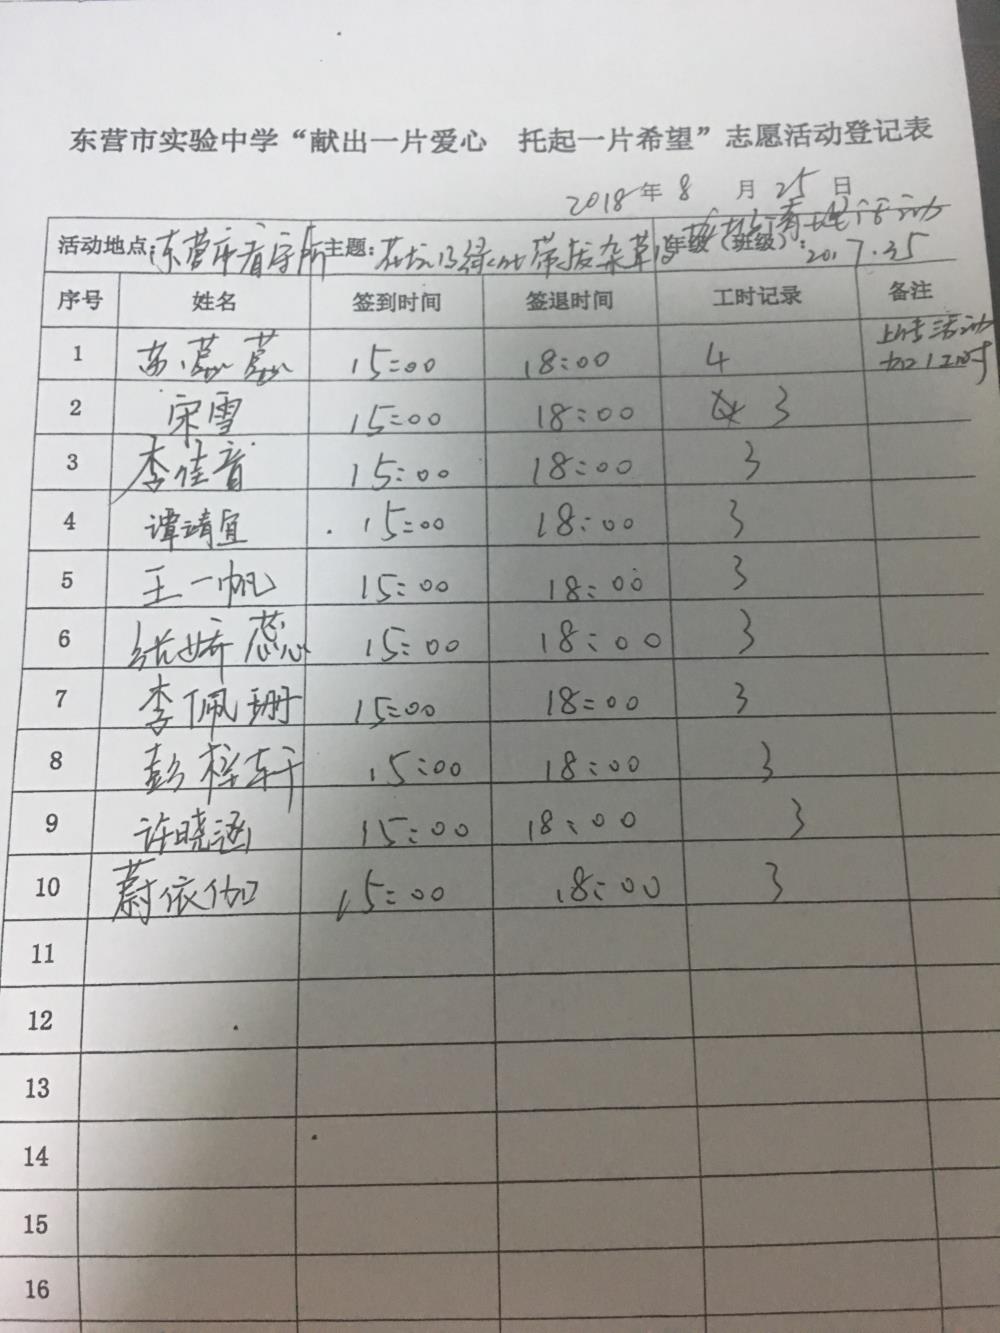 东营市实验中学“献出一片爱心 托起一片希望”志愿活动登记表
2018年8月25日
活动地点:东营市看守所 主题:花坛及绿化带拔杂草及 清理活动 年级（班级）:2017.35
序号 姓名 签到时间 签退时间 工时记录 备注
1 苏荔荔 15:00 18:00 4 上传活动加1工时
2 宋雪 15:00 18:00 3
3 李佳音 15:00 18:00 3
4 谭靖宜 15:00 18:00 3
5 王一帆 15:00 18:00 3
6 张娇蕊 15:00 18:00 3
7 李佩珊 15:00 18:00 3
8 彭梓轩 15:00 18:00 3
9 许晓涵 15:00 18:00 3
10 蔚依伽 15:00 18:00 3
11
12
13
14
15
16